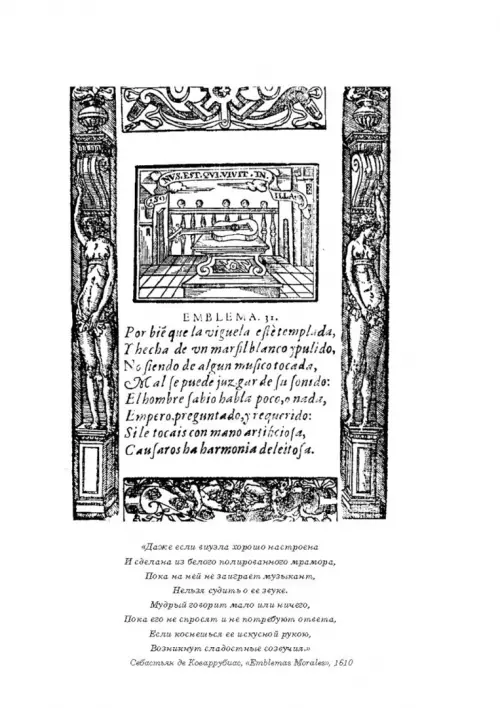 NVS. EST. QVI. VIVIT. IN.
ILLA
EMBLEMA. 31.
Por biē que la viguela estè templada,
Y hecha de vn marfil blanco y pulido,
No siendo de algun musico tocada,
Mal se puede juzgar de su sonido:
El hombre sabio habla poco, o nada,
Empero, preguntado, y requerido:
Si le tocais con mano artificiosa,
Causaros ha harmonia deleitosa.
«Даже если виуэла хорошо настроена
И сделана из белого полированного мрамора,
Пока на ней не заиграет музыкант,
Нельзя судить о ее звуке.
Мудрый говорит мало или ничего,
Пока его не спросят и не потребуют ответа,
Если коснешься ее искусной рукою,
Возникнут сладостные созвучия.»
Себастьян де Коваррубиас, «Emblemas Morales», 1610